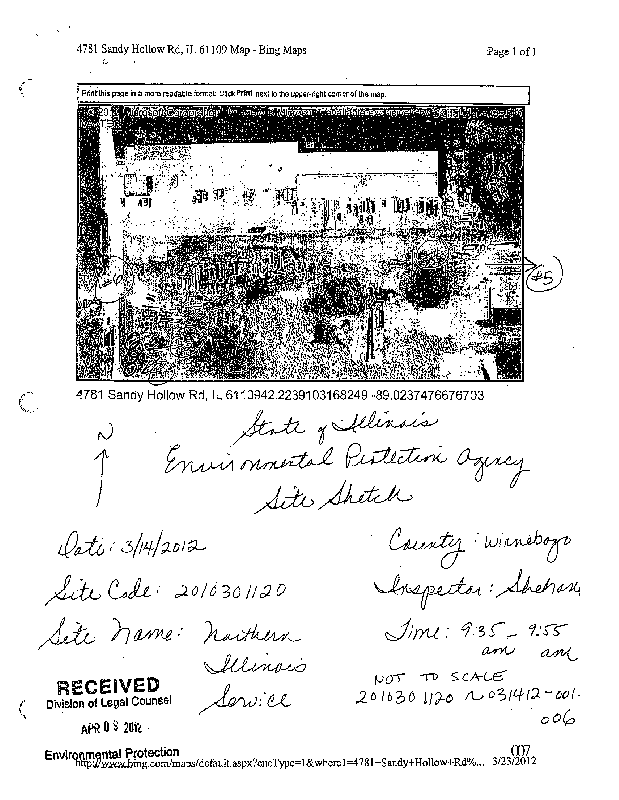 4781 Sandy Hollow Rd, IL 61109 Map - Bing Maps
Page 1 of 1
Print this page in a more readable format: Click Print next to the upper-right corner of the map.
#5
4781 Sandy Hollow Rd, IL 6110942.2239103168249 -89.0237476676703
N
State of Illinois
Environmental Protection Agency
Site Sketch
Date: 3/14/2012
County: Winnebago
Site Code: 2010301120
Inspector: Shehane
Site Name: Northern
Illinois
Service
Time: 9:35 - 9:55
am am
NOT TO SCALE
2010301120 ~031412-001-
006
RECEIVED
Division of Legal Counsel
APR 09 2012
Environmental Protection
007
http://www.bing.com/maps/default.aspx?encType=1&where1=4781+Sandy+Hollow+Rd%... 3/23/2012